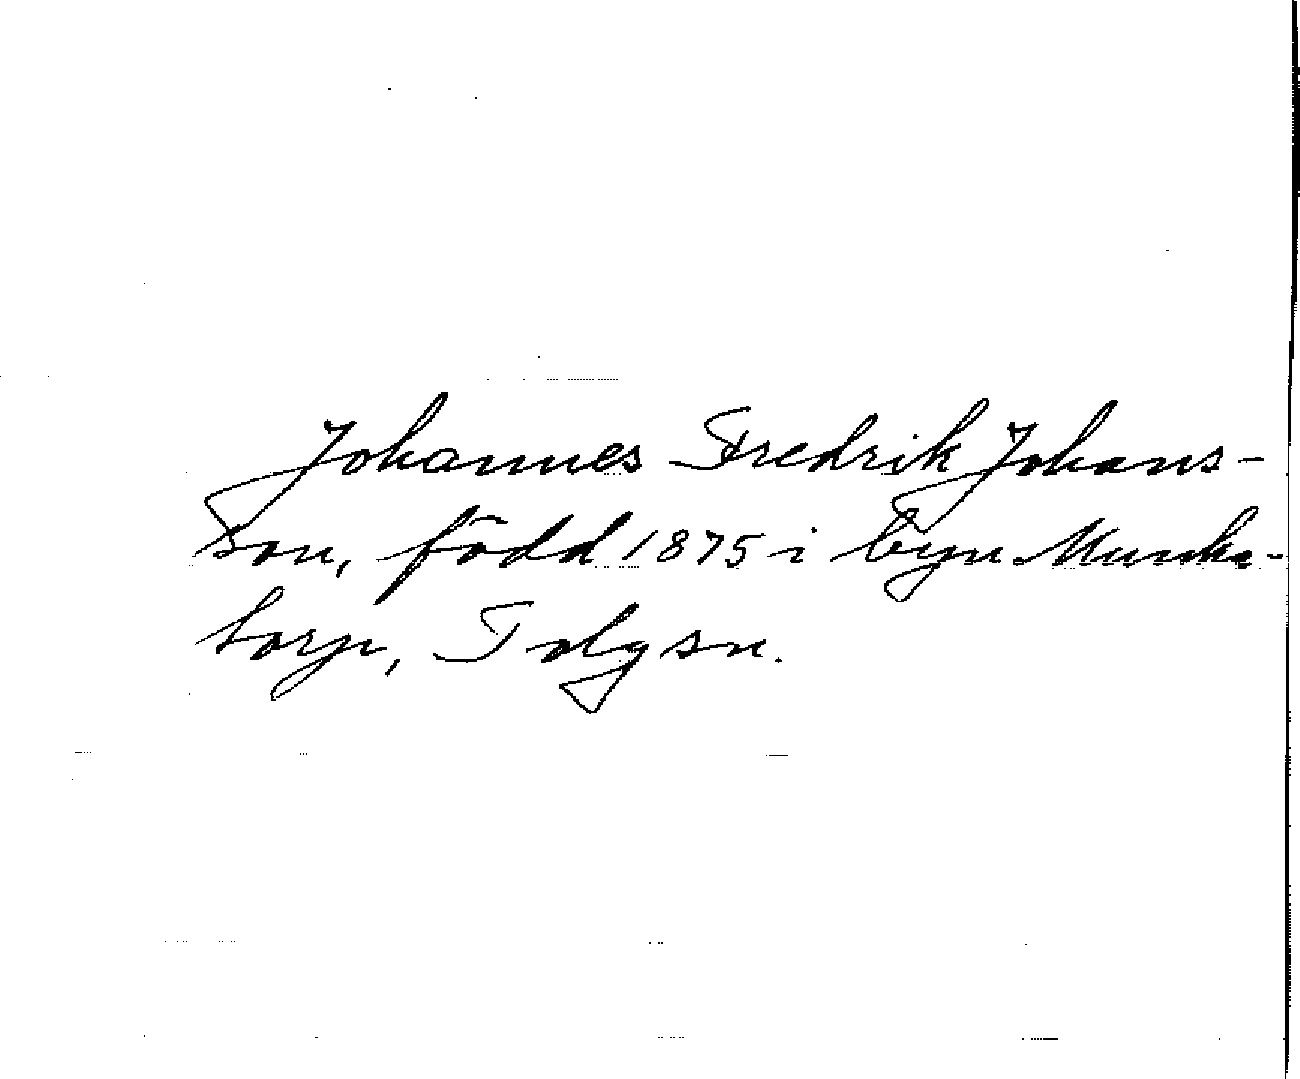 Johannes Fredrik Johans-
son, född 1875 i byn Munka-
torp, Tolg sn.